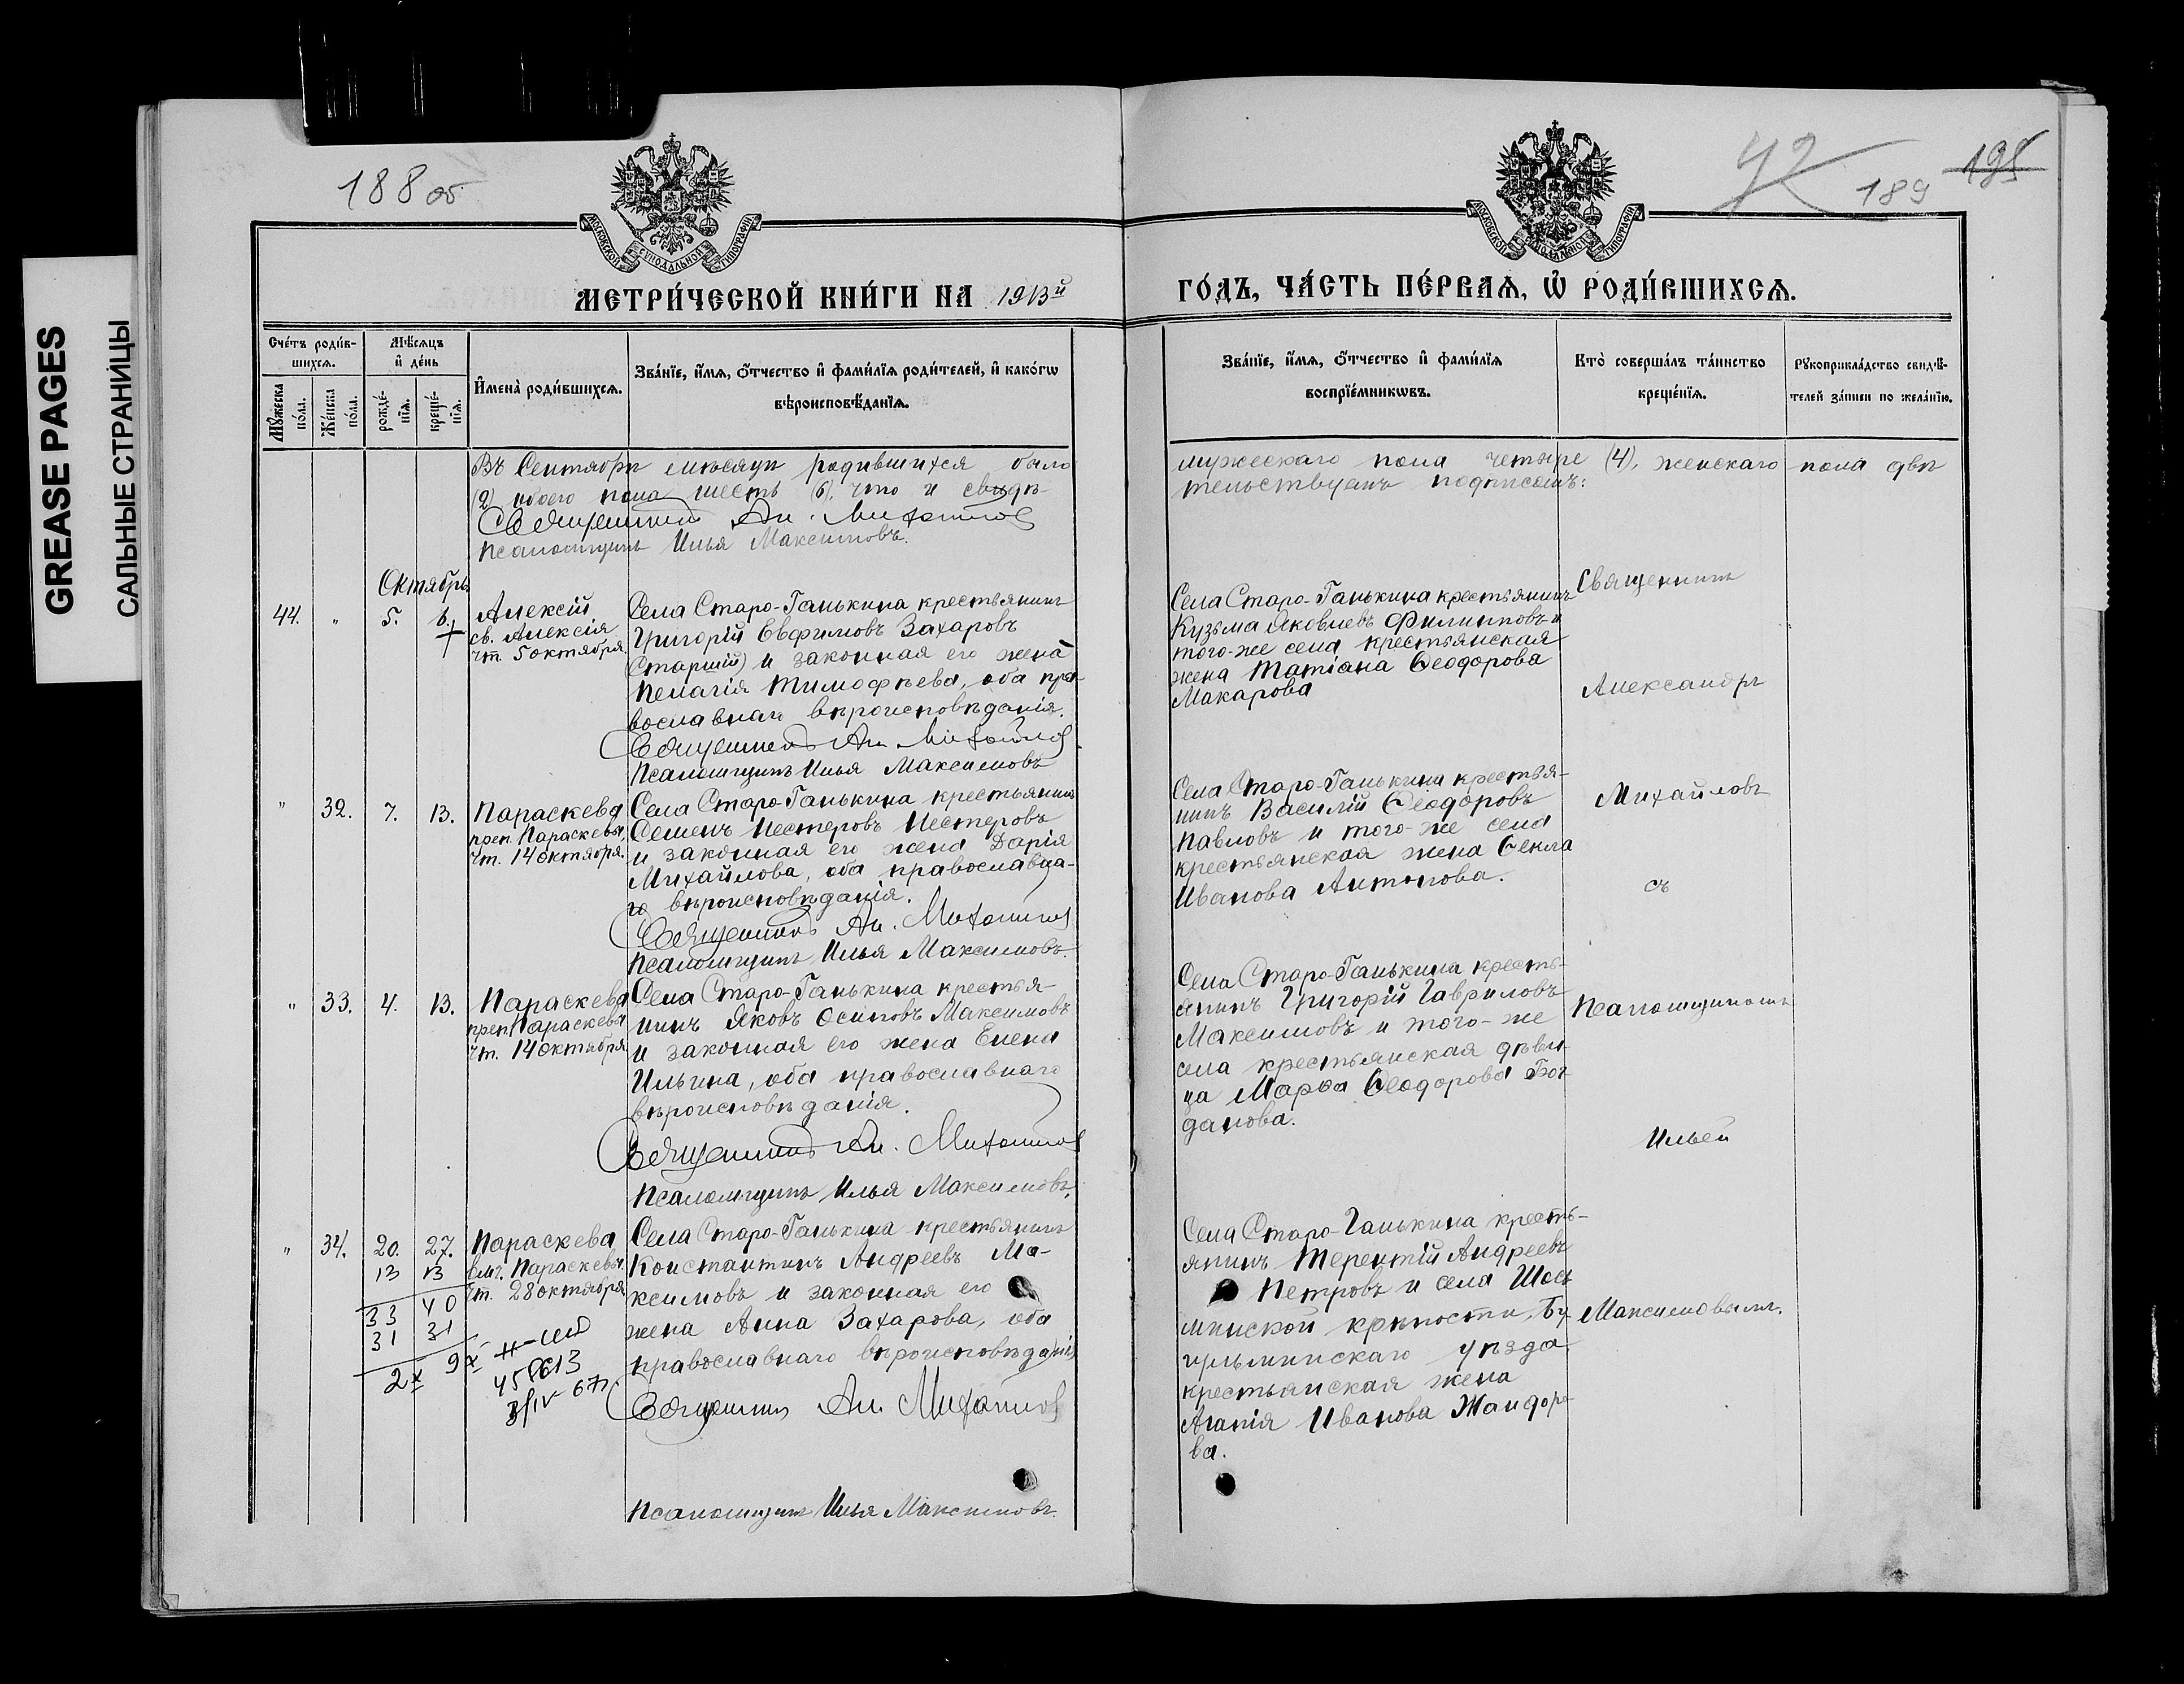 GREASE PAGES
САЛЬНЫЕ СТРАНИЦЫ
188 об
42
189
195
МОСКОВСКОЙ СѴНОДАЛЬНОЙ ТИПОГРАФІИ
МОСКОВСКОЙ СѴНОДАЛЬНОЙ ТИПОГРАФІИ
МЕТРИ́ЧЕСКОЙ КНИ́ГИ НА 1913й
ГО́ДЪ, ЧА́СТЬ ПЕ́РВАѦ, Ѡ҆ РОДИ́ВШИХСѦ.
Сче́тъ роди́в-
шихсѧ.
Мꙋ́жеска
по́ла.
Же́нска
по́ла.
Мѣ́сѧцъ
и҆ де́нь
рожде́-
нїѧ.
креще́-
нїѧ.
И҆мена̀ роди́вшихсѧ.
Зва́нїе, и҆́мѧ, ѻ҆́тчество и҆ фами́лїѧ роди́телей, и҆ како́гѡ
вѣроисповѣ́данїѧ.
Зва́нїе, и҆́мѧ, ѻ҆́тчество и҆ фами́лїѧ
воспрїе́мникѡвъ.
Кто̀ соверша́лъ та́инство
креще́нїѧ.
Рꙋкоприкла́дство свидѣ́-
телей за́писи по жела́нїю.
Въ Сентябрѣ мѣсяцѣ родившихся было
мужескаго пола четыре (4), женскаго пола двѣ
(2) обоего пола шесть (6), что и свидѣ-
тельствуемъ подписомъ:
Священникъ Ал. Михайловъ
Псаломщикъ Илья Максимовъ.
Октябрь
44. " 5. 6.
Алексій
св. Алексія
чт. 5 октября.
Села Старо-Ганькина крестьянинъ
Григорій Евфимовъ Захаровъ
(старшій) и законная его жена
Пелагія Тимофѣева, оба пра-
вославнаго вѣроисповѣданія.
Священникъ Ал. Михайловъ
Псаломщикъ Илья Максимовъ
Села Старо-Ганькина крестьянинъ
Кузьма Яковлевъ Филипповъ и
того-же села крестьянская
жена Татіана Ѳеодорова
Макарова
Священникъ
Александръ
Михайловъ
съ
Псаломщикомъ
Ильей
Максимовымъ.
" 32. 7. 13.
Параскева
преп. Параскевы,
чт. 14 октября.
Села Старо-Ганькина крестьянинъ
Семенъ Нестеровъ Нестеровъ
и законная его жена Дарія
Михайлова, оба православна-
го вѣроисповѣданія.
Священникъ Ал. Михайловъ
Псаломщикъ Илья Максимовъ.
Села Старо-Ганькина крестья-
нинъ Василій Ѳеодоровъ
Павловъ и того-же села
крестьянская жена Ѳекла
Иванова Антонова.
" 33. 4. 13.
Параскева
преп. Параскевы
чт. 14 октября
Села Старо-Ганькина крестья-
нинъ Яковъ Осиповъ Максимовъ
и законная его жена Елена
Ильина, оба православнаго
вѣроисповѣданія.
Священникъ Ал. Михайловъ
Псаломщикъ Илья Максимовъ.
Села Старо-Ганькина кресть-
янинъ Григорій Гавриловъ
Максимовъ и того-же
села крестьянская дѣви-
ца Марѳа Ѳеодорова Бог-
данова.
" 34. 20. 27.
Параскева
вмч. Параскевы.
чт. 28 октября
13 13
33 40
31 31
2х 9х
3/IV 67г.
Села Старо-Ганькина крестьянинъ
Константинъ Андреевъ Ма-
ксимовъ и законная его
жена Анна Захарова, оба
православнаго вѣроисповѣданія
Священникъ Ал. Михайловъ
Псаломщикъ Илья Максимовъ.
Села Старо-Ганькина кресть-
янинъ Терентій Андреевъ
Петровъ и села Шеш-
минской крѣпости, Бу-
гульминскаго уѣзда
крестьянская жена
Агапія Иванова Жандоро-
ва.